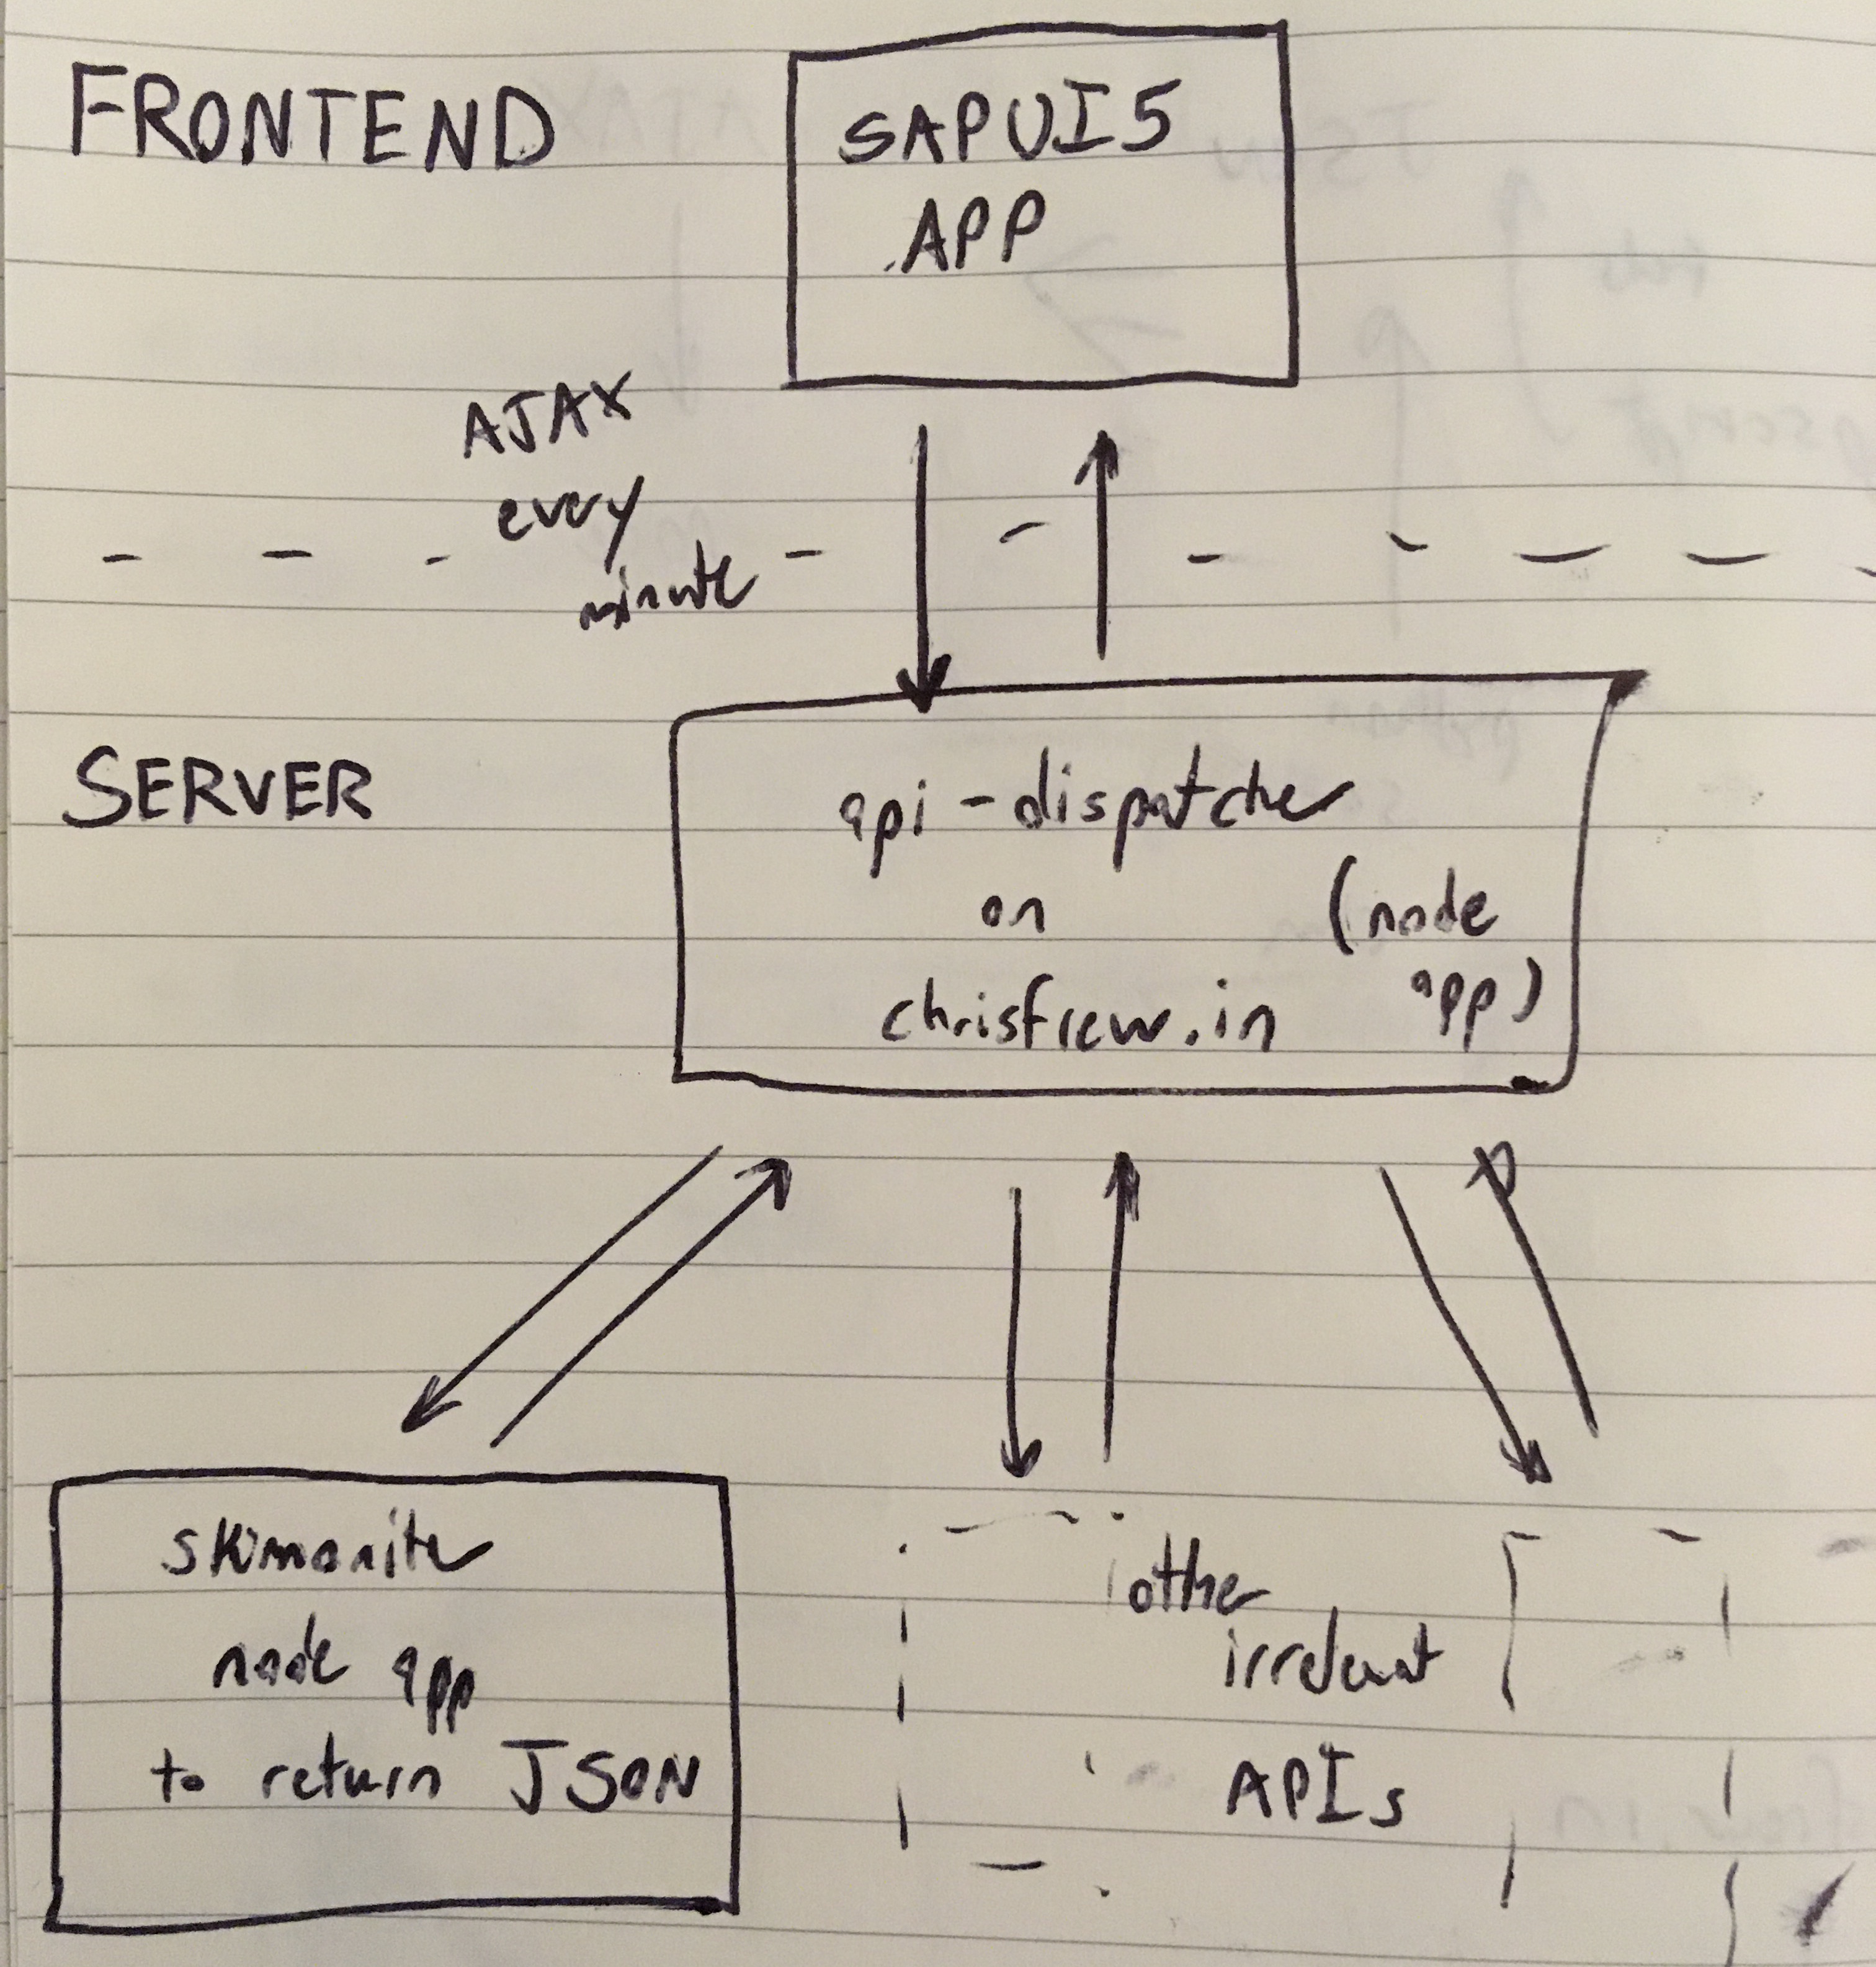 FRONTEND
SAPUI5
APP
AJAX
every
minute
SERVER
api-dispatcher
on
(node
app)
chrisfrew.in
skimonitor
node app
to return JSON
other
irrelevant
APIs